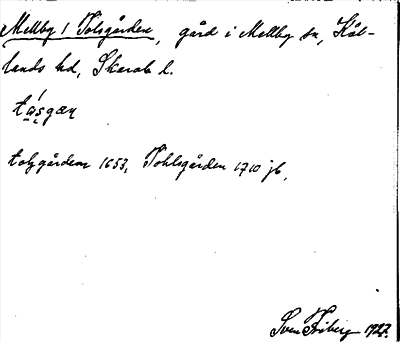 Mellby 1 Tolsgården, gård i Mellby sn, Kål-
lands hd, Skarab. l.
tásgæṇ
tolsgården 1653, Tohlsgården 1710 jb.
Sven Friberg 1927.